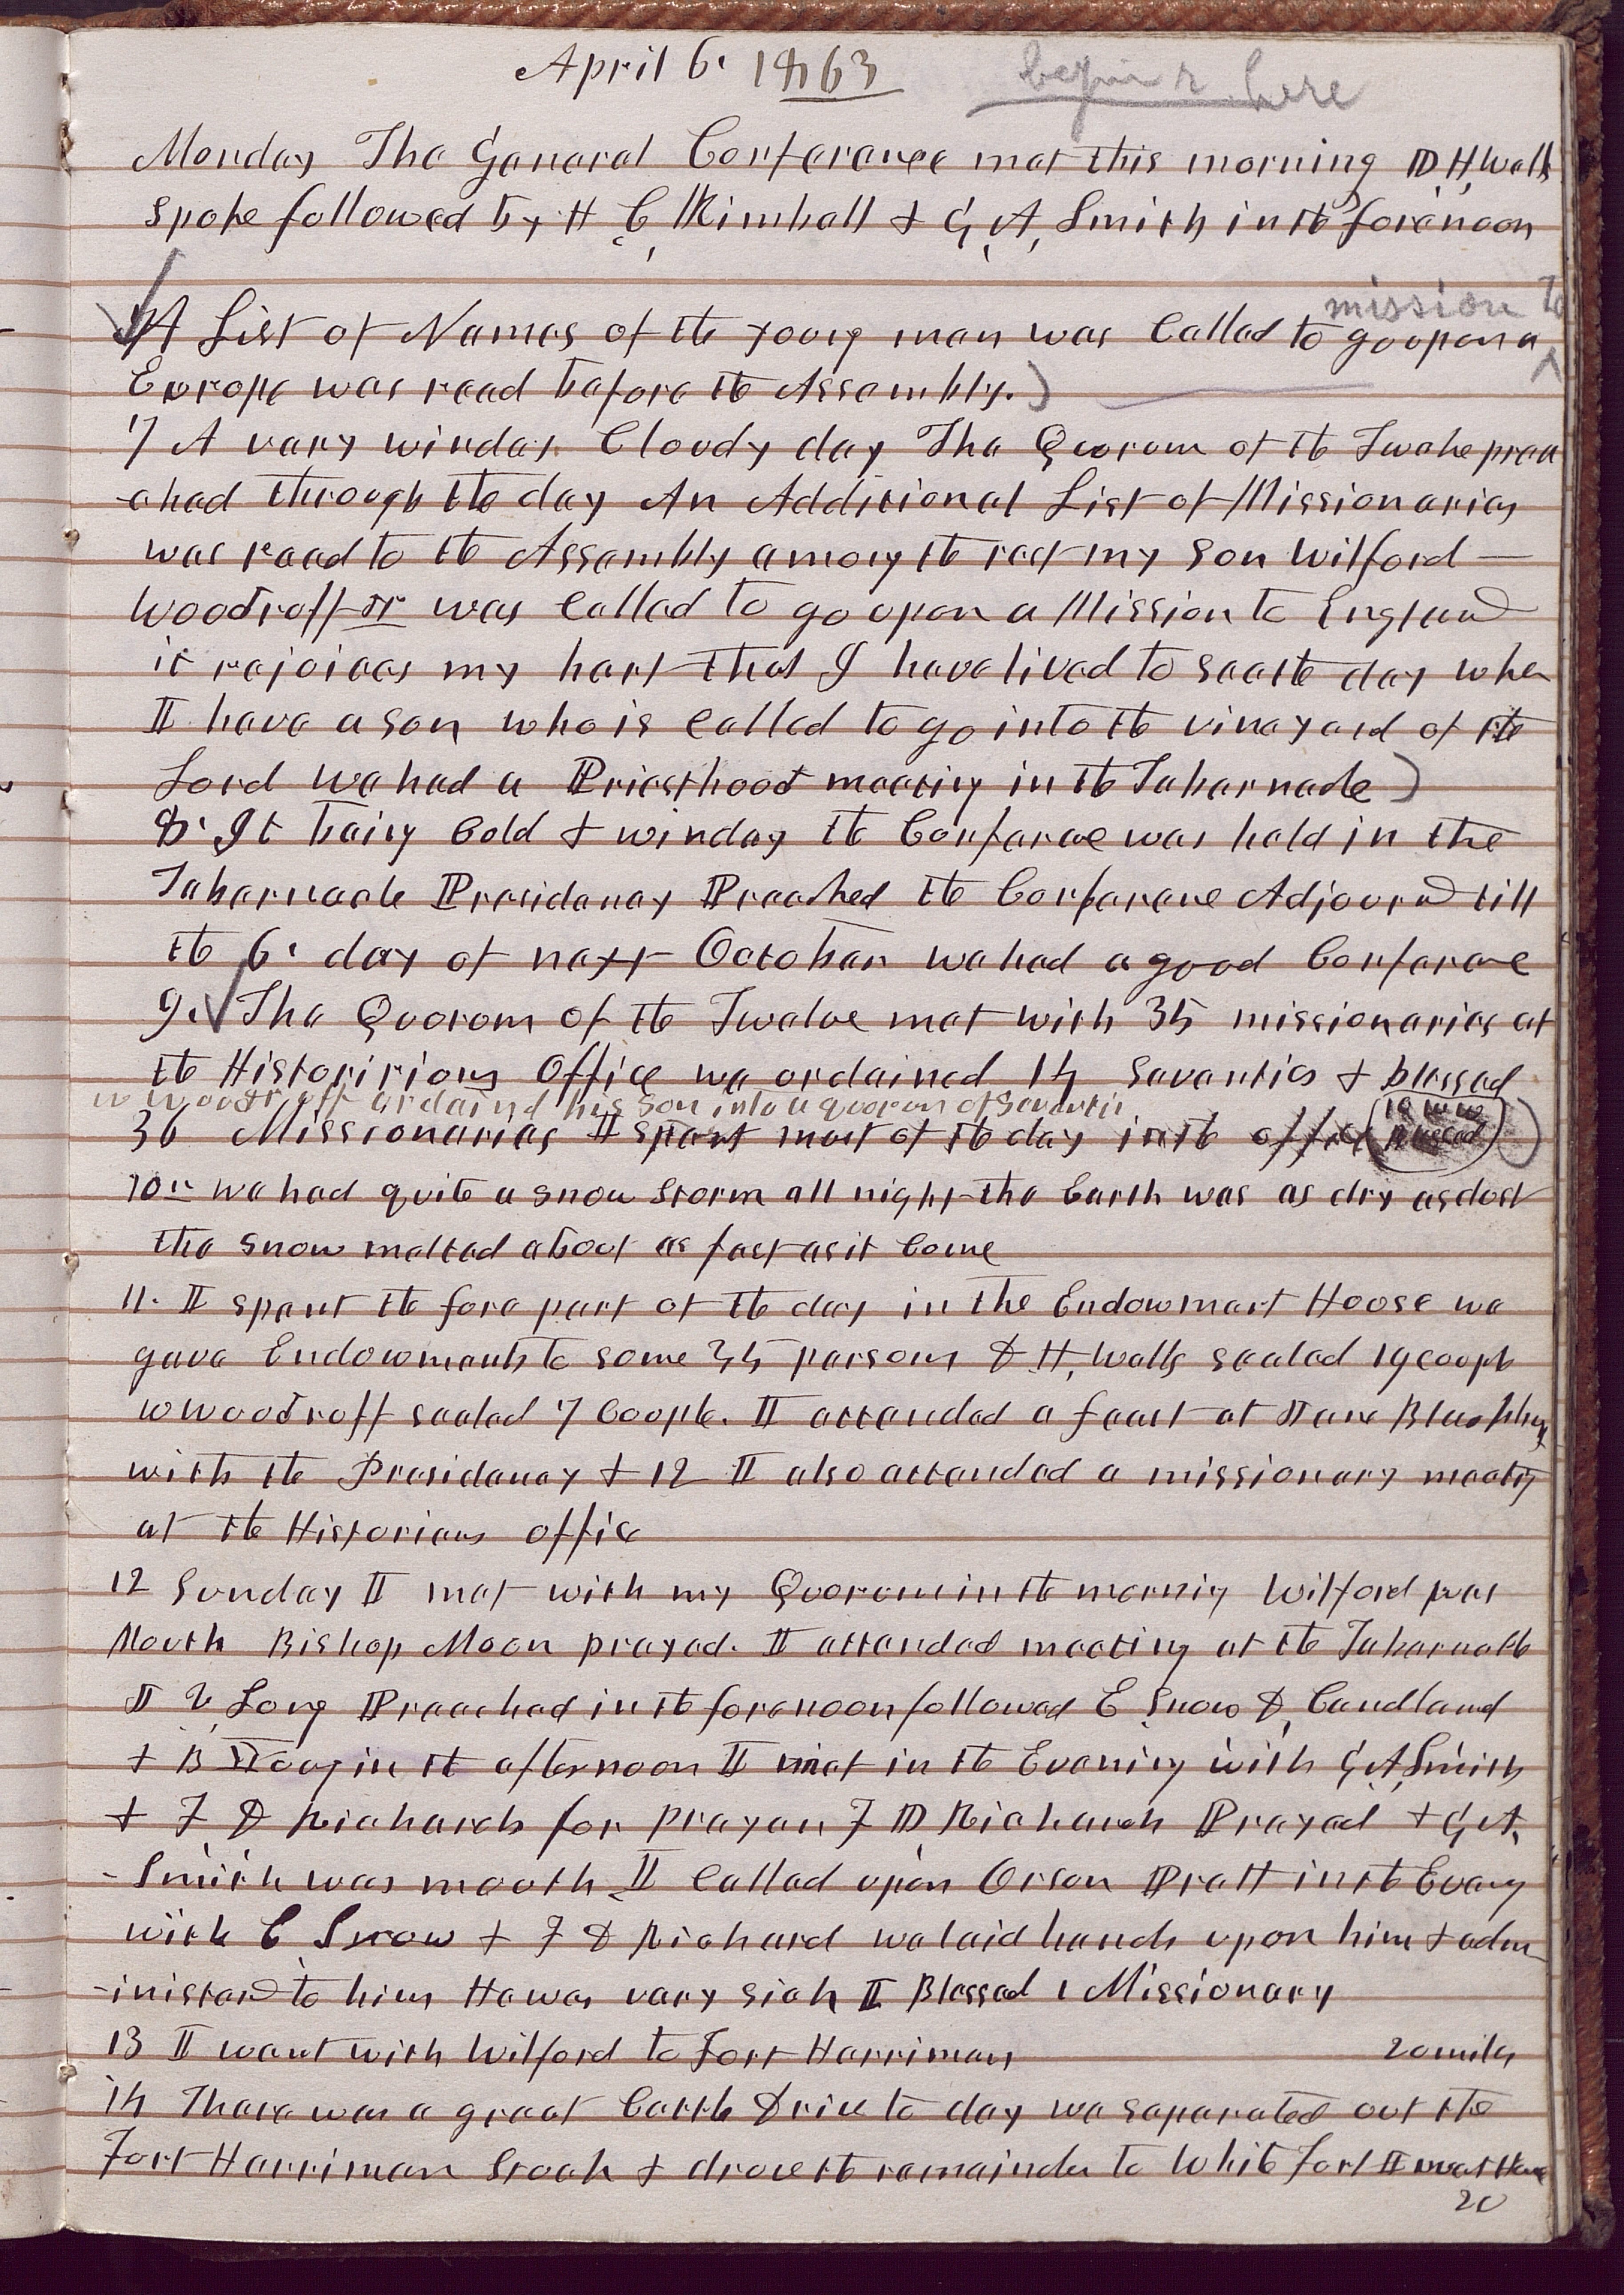 April 6. 1863 begin r here
Monday The General Conference met this morning D, H, Wells
spoke followed by H C, Kimball & G, A, Smith in the forenoon
mission to
A List of Names of the young men was Called to go upon a ^
Europe was read before the Assembly.)
7 A very winday Cloudy day The Quorum of the Twelve prea
-ched through the day An Additional List of Missionaries
was read to the Assembly among the rest my son Wilford
Woodruff Jr was Called to go upon a Mission to England
it rejoices my hart that I have lived to see the day when
I have a son who is Called to go into the vineyard of the
Lord we had a Priesthood meeting in the Tabernacle)
8. It being Cold & winday the Conferance was held in the
Tabernacle Presidency Preached the Conferance Adjournd till
the 6. day of next October we had a good Conferance
9. The Quorum of the Twelve met with 35 missionaries at
the Historirions Office we ordained 14 Seventies & blessed
W Woodruff ordaind his son into a quorum of Seventies
36 Missionaries I spent most of the day in the office 10 WW blessed)
10th we had quite a snow Storm all night the Earth was as dry as dost
the snow melted about as fast as it Come
11. I spent the fore part of the day in the Endowment House we
gave Endowments to some 34 persons D. H, Wells sealed 19 coupls
W Woodruff sealed 7 Couple. I attended a feast at Jane Blackhurst
with the Presidency & 12 I also attended a missionary meeting
at the Historians office
12 Sunday I met with my Quorum in the morning Wilford was
Mouth Bishop Moon prayed. I attended meeting at the Tabernacle
J V, Long Preached in the forenoon followed E Snow D, Candland
& B Young in the afternoon I met in the Evening with G, A, Smith
& F D Richards for Prayers F D Richards Prayed & G, A,
-Smith was mouth I Called upon Orson Pratt in the Evening
with E Snow & F D Richard we laid hands upon him & adm
-inisterd to him He was very sick I Blessed 1 Missionary
13 I went with Wilford to Fort Harriman 20 miles
14 There was a great Cattle Drive to day we separated out the
Fort Harriman Stock & drove the remainder to White fort I went there
20